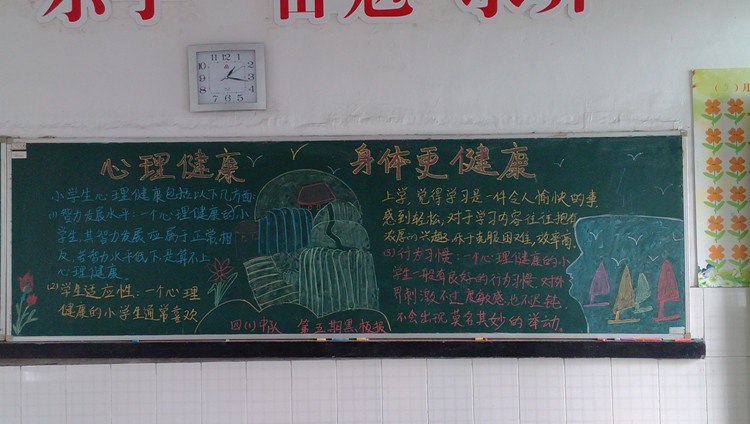 心理健康 身体更健康
小学生心理健康包括以下几方面:
(1)智力发展水平:一个心理健康的小
学生,其智力发展应属于正常,相
反,若智力水平低下是算不上
心理健康
(2)学生适应性:一个心理
健康的小学生通常喜欢
上学,觉得学习是一件令人愉快的事
感到轻松,对于学习内容往往抱有
浓厚的兴趣,乐于克服困难,效率高.
(3)行为习惯:一个心理健康的小
学生一般有良好的行为习惯,对外
界刺激不过度敏感,也不迟钝
不会出现莫名其妙的举动.
四(1)中队 第五期黑板报
12
1
2
3
4
5
6
7
8
9
10
11